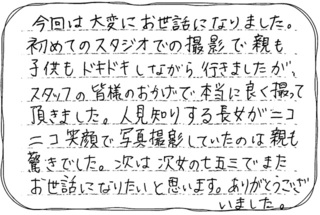 今回は大変にお世話になりました。
初めてのスタジオでの撮影で親も
子供もドキドキしながら行きましたが、
スタッフの皆様のおかげで本当に良く撮って
頂きました。人見知りする長女がニコ
ニコ笑顔で写真撮影していたのは親も
驚きでした。次は次女の七五三でまた
お世話になりたいと思います。ありがとうござい
いました。